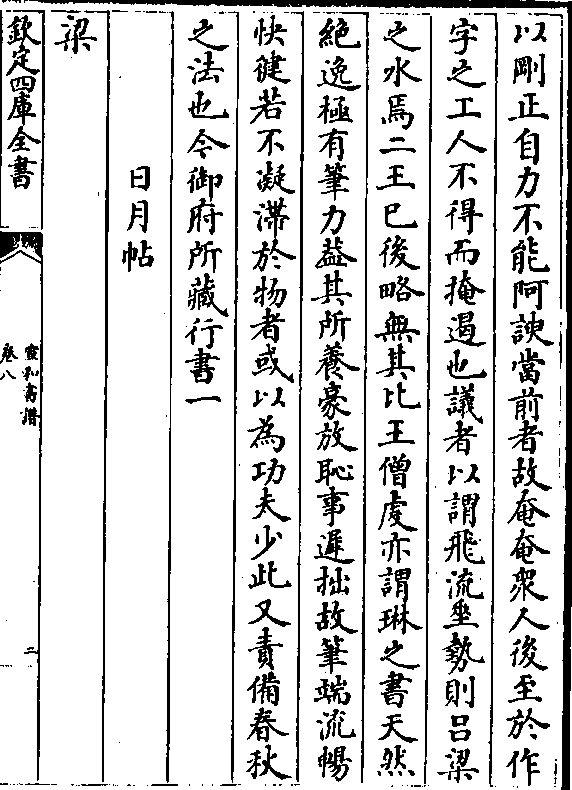 以剛正自力不能阿諛當前者故奄奄衆人後至於作
字之工人不得而掩遏也議者以謂飛流埀勢則吕梁
之水焉二王已後略無其比王僧虔亦謂琳之書天然
絶逸極有筆力葢其所養豪放恥事遲拙故筆端流暢
快健若不凝滯於物者或以為功夫少此又責備春秋
之法也今御府所藏行書一
日月帖
梁
欽定四庫全書
宣和書譜
卷八
二